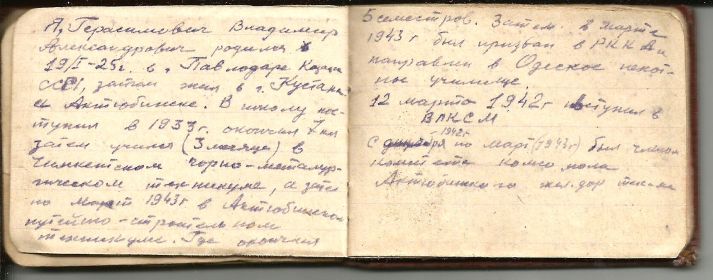 Я, Герасимович Владимир
Александрович родился в
19/I-25г. в г. Павлодаре Казах
ССР, затем жил в г. Кустана
и Актюбинске. В школу пос-
тупил в 1933г. окончил 7 кл
затем учился (3 месяца) в
Чимкетском горно-металур-
гическом техникуме, а затем
по март 1943г в Актюбинском
путейно-строительном
техникуме. Где окончил
5 семестров. Затем 2 марта
1943г был призван в РККА и
направлен в Одеское пехот-
ное училище
12 марта 1942г вступил в
ВЛКСМ
С декабря 1942г. по март (1943г) был членом
комитета комсомола
Актюбинского жел.дор. тех-ма